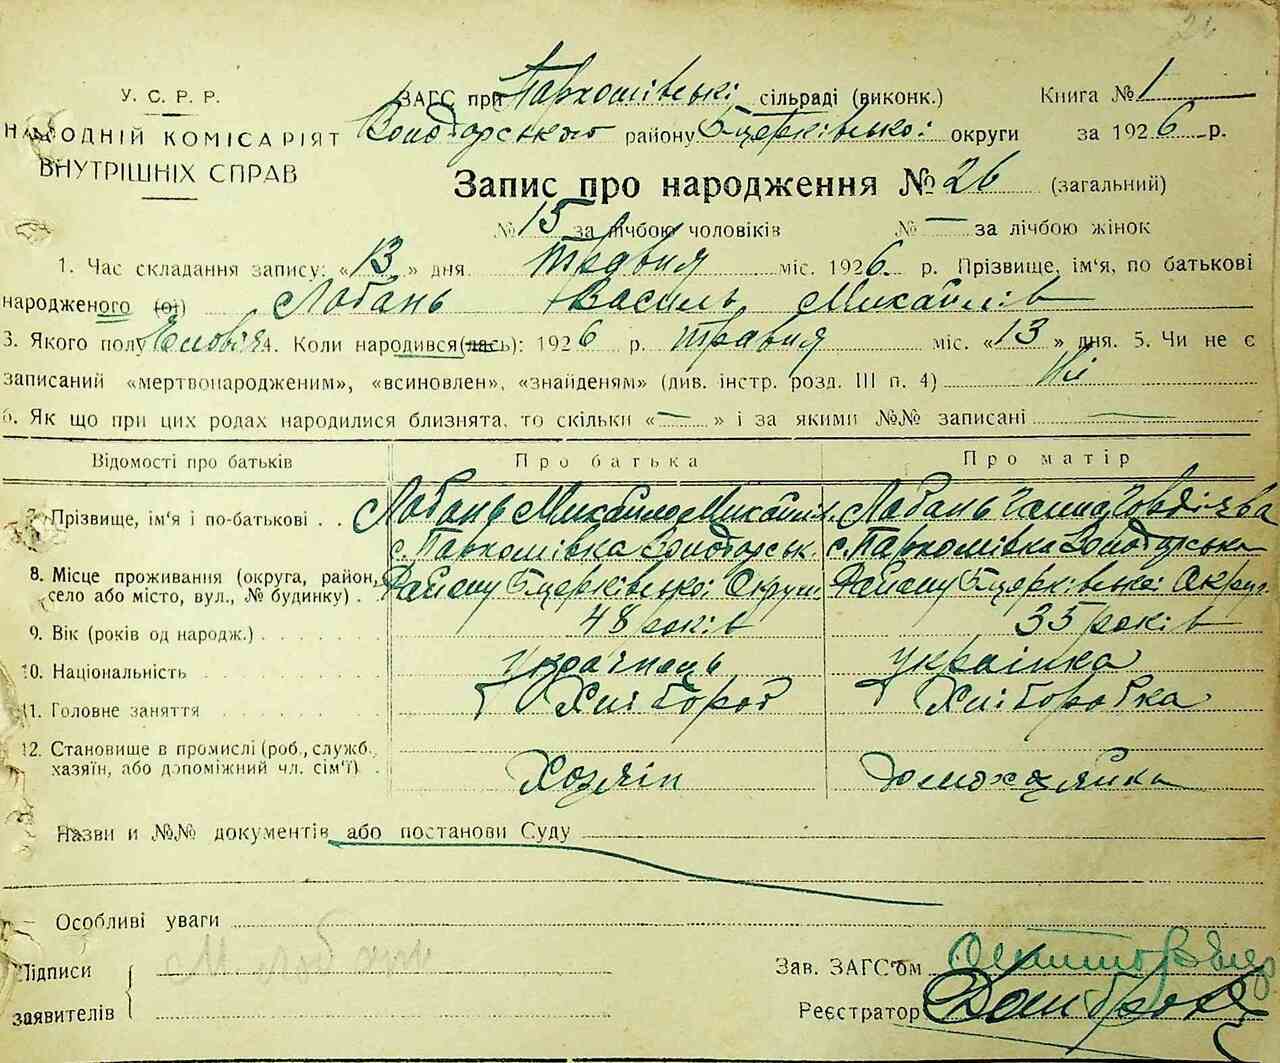 26
У. С. Р. Р.
НАРОДНІЙ КОМІСАРІЯТ
ВНУТРІШНІХ СПРАВ
ЗАГС при Пархомівські сільраді (виконк.) Книга № 1
Володарського району Бцерківської округи за 1926 р.
Запис про народження № 26 (загальний)
№ 15 за лічбою чоловіків № — за лічбою жінок
1. Час складання запису: «13» дня травня міс. 1926 р. Прізвище, ім'я, по батькові
народженого (ої) Лобань Василь Михайлів
3. Якого полу 4. Коли народився(лась): 1926 р. травня міс. «13» дня. 5. Чи не є
записаний «мертвонародженим», «всиновлен», «знайденям» (див. інстр. розд. III п. 4) Ні
6. Як що при цих родах народилися близнята, то скільки «—» і за якими №№ записані —
Відомості про батьків Про батька Про матір
7. Прізвище, ім'я і по-батькові . . Лобань Михайло Михайл. Лобань Ганна
с. Пархомівка Володарськ. с. Пархомівка Володарська
8. Місце проживання (округа, район, село або місто, вул., № будинку) . Району Бцерківської Округи Району Бцерківської Округ.
9. Вік (років од народж.) 48 років 35 років
10. Національність українець українка
11. Головне заняття Хлібороб Хліборобка
12. Становище в промислі (роб., служб., хазяїн, або допоміжний чл. сім'ї) . Хозяїн домохозяйка
Назви и №№ документів або постанови Суду
Особливі уваги
Підписи заявителів М Лобань
Зав. ЗАГС'ом
Реєстратор